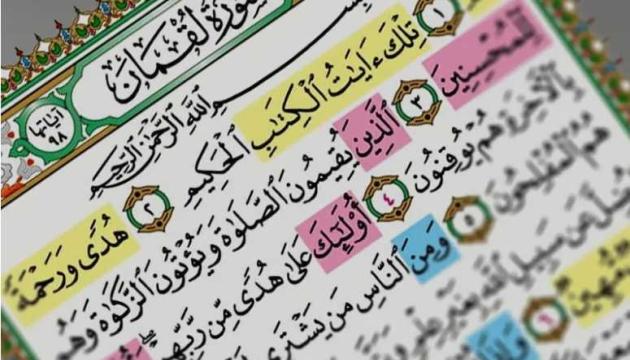 سُورَةُ لُقْمَان
٩٨
بِسْمِ ٱللَّهِ ٱلرَّحْمَٰنِ ٱلرَّحِيمِ
١ تِلْكَ ءَايَٰتُ ٱلْكِتَٰبِ ٱلْحَكِيمِ ٢ هُدًى وَرَحْمَةً
لِّلْمُحْسِنِينَ ٣ ٱلَّذِينَ يُقِيمُونَ ٱلصَّلَوٰةَ وَيُؤْتُونَ ٱلزَّكَوٰةَ وَهُم
بِٱلْءَاخِرَةِ هُمْ يُوقِنُونَ ٤ أُو۟لَٰٓئِكَ عَلَىٰ هُدًى مِّن رَّبِّهِمْ
هُمُ ٱلْمُفْلِحُونَ ٥ وَمِنَ ٱلنَّاسِ مَن يَشْتَرِى
عَن سَبِيلِ ٱللَّهِ بِغَيْرِ عِلْمٍ
مُّهِينٌ ٦ وَإِذَا